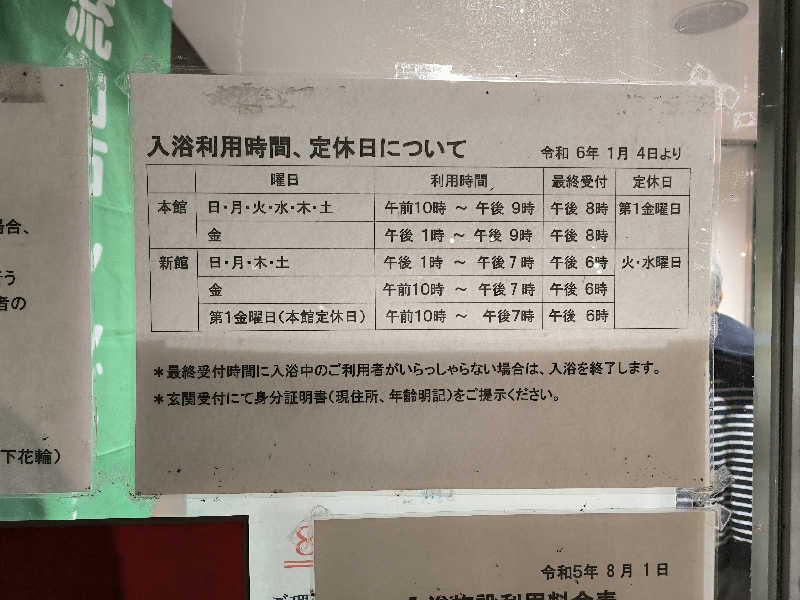 流
場合、
行う
者の
下花輪）
入浴利用時間、定休日について 令和 6年 1月 4日より
曜日 利用時間 最終受付 定休日
本館 日・月・火・水・木・土 午前10時 ～ 午後 9時 午後 8時 第1金曜日
金 午後 1時 ～ 午後 9時 午後 8時
新館 日・月・木・土 午後 1時 ～ 午後 7時 午後 6時 火・水曜日
金 午前10時 ～ 午後 7時 午後 6時
第1金曜日（本館定休日） 午前10時 ～ 午後7時 午後 6時
＊最終受付時間に入浴中のご利用者がいらっしゃらない場合は、入浴を終了します。
＊玄関受付にて身分証明書（現住所、年齢明記）をご提示ください。
令和5年 8月 1日
入浴施設利用料金表